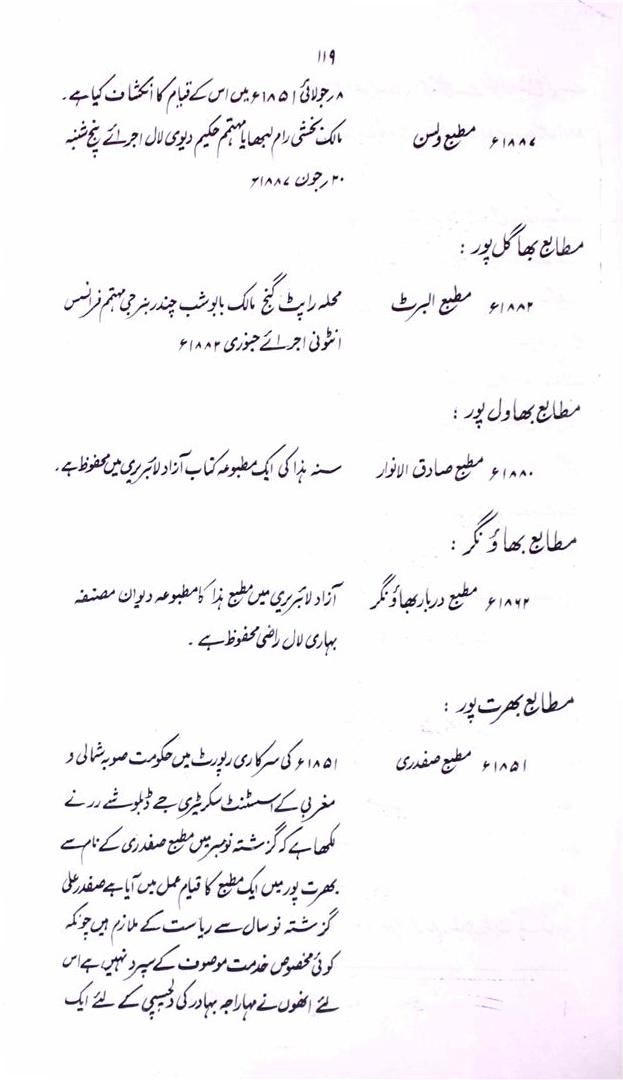 ۱۱۹
۸ر جولائی ۱۸۵۱ء میں اس کے قیام کا انکشاف کیا ہے۔
۱۸۸۷ء مطبع ولسن مالک بخشی رام لبھایا مہتمم حکیم دیوی لال اجرائے پنچ شنبہ
۳۰ر جون ۱۸۸۷ء
مطابع بھاگل پور :
۱۸۸۲ء مطبع البرٹ محلہ راپٹ گنج مالک بابو شب چندر بنرجی مہتمم فرانسس
انٹونی اجرائے جنوری ۱۸۸۲ء
مطابع بھاول پور :
۱۸۸۰ء مطبع صادق الانوار سنہ ہذا کی ایک مطبوعہ کتاب آزاد لائبریری میں محفوظ ہے۔
مطابع بھاؤ نگر :
۱۸۶۲ء مطبع دربار بھاؤنگر آزاد لائبریری میں مطبع ہذا کا مطبوعہ دیوان مصنفہ
بہاری لال راضی محفوظ ہے ۔
مطابع بھرت پور :
۱۸۵۱ء مطبع صفدری ۱۸۵۱ء کی سرکاری رپورٹ میں حکومت صوبہ شمالی و
مغربی کے اسسٹنٹ سکریٹری جے ڈبلو شے رر نے
لکھا ہے کہ گزشتہ نومبر میں مطبع صفدری کے نام سے
بھرت پور میں ایک مطبع کا قیام عمل میں آیا ہے صفدر علی
گزشتہ نو سال سے ریاست کے ملازم ہیں چونکہ
کوئی مخصوص خدمت موصوف کے سپرد نہیں ہے اس
لئے انھوں نے مہاراجہ بہادر کی دلچسپی کے لئے ایک